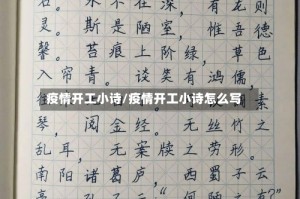 灵。斯是陋室，惟吾德
馨。苔痕上阶绿，草色
入帘青。谈笑有鸿儒，
疫情开工小诗/疫情开工小诗怎么写
素
琴，阅金经。无丝竹之
乱耳，无案牍劳形。
南阳诸葛庐，西蜀子云
何陋之有?"